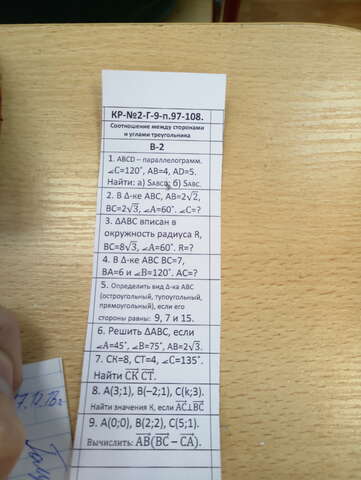 КР-№2-Г-9-п.97-108.
Соотношение между сторонами
и углами треугольника
В-2
1. ABCD – параллелограмм.
∠C=120˚, AB=4, AD=5.
Найти: а) SABCD; б) SABC.
2. В Δ-ке ABC, AB=2√2,
BC=2√3, ∠A=60˚. ∠C=?
3. ΔABC вписан в
окружность радиуса R,
BC=8√3, ∠A=60˚. R=?
4. В Δ-ке ABC BC=7,
BA=6 и ∠B=120˚. AC=?
5. Определить вид Δ-ка ABC
(остроугольный, тупоугольный,
прямоугольный), если его
стороны равны: 9, 7 и 15.
6. Решить ΔABC, если
∠A=45˚, ∠B=75˚, AB=2√3.
7. CK=8, CT=4, ∠C=135˚.
Найти CK CT.
8. A(3;1), B(–2;1), C(k;3).
Найти значения K, если AC⊥BC
9. A(0;0), B(2;2), C(5;1).
Вычислить: AB(BC − CA).